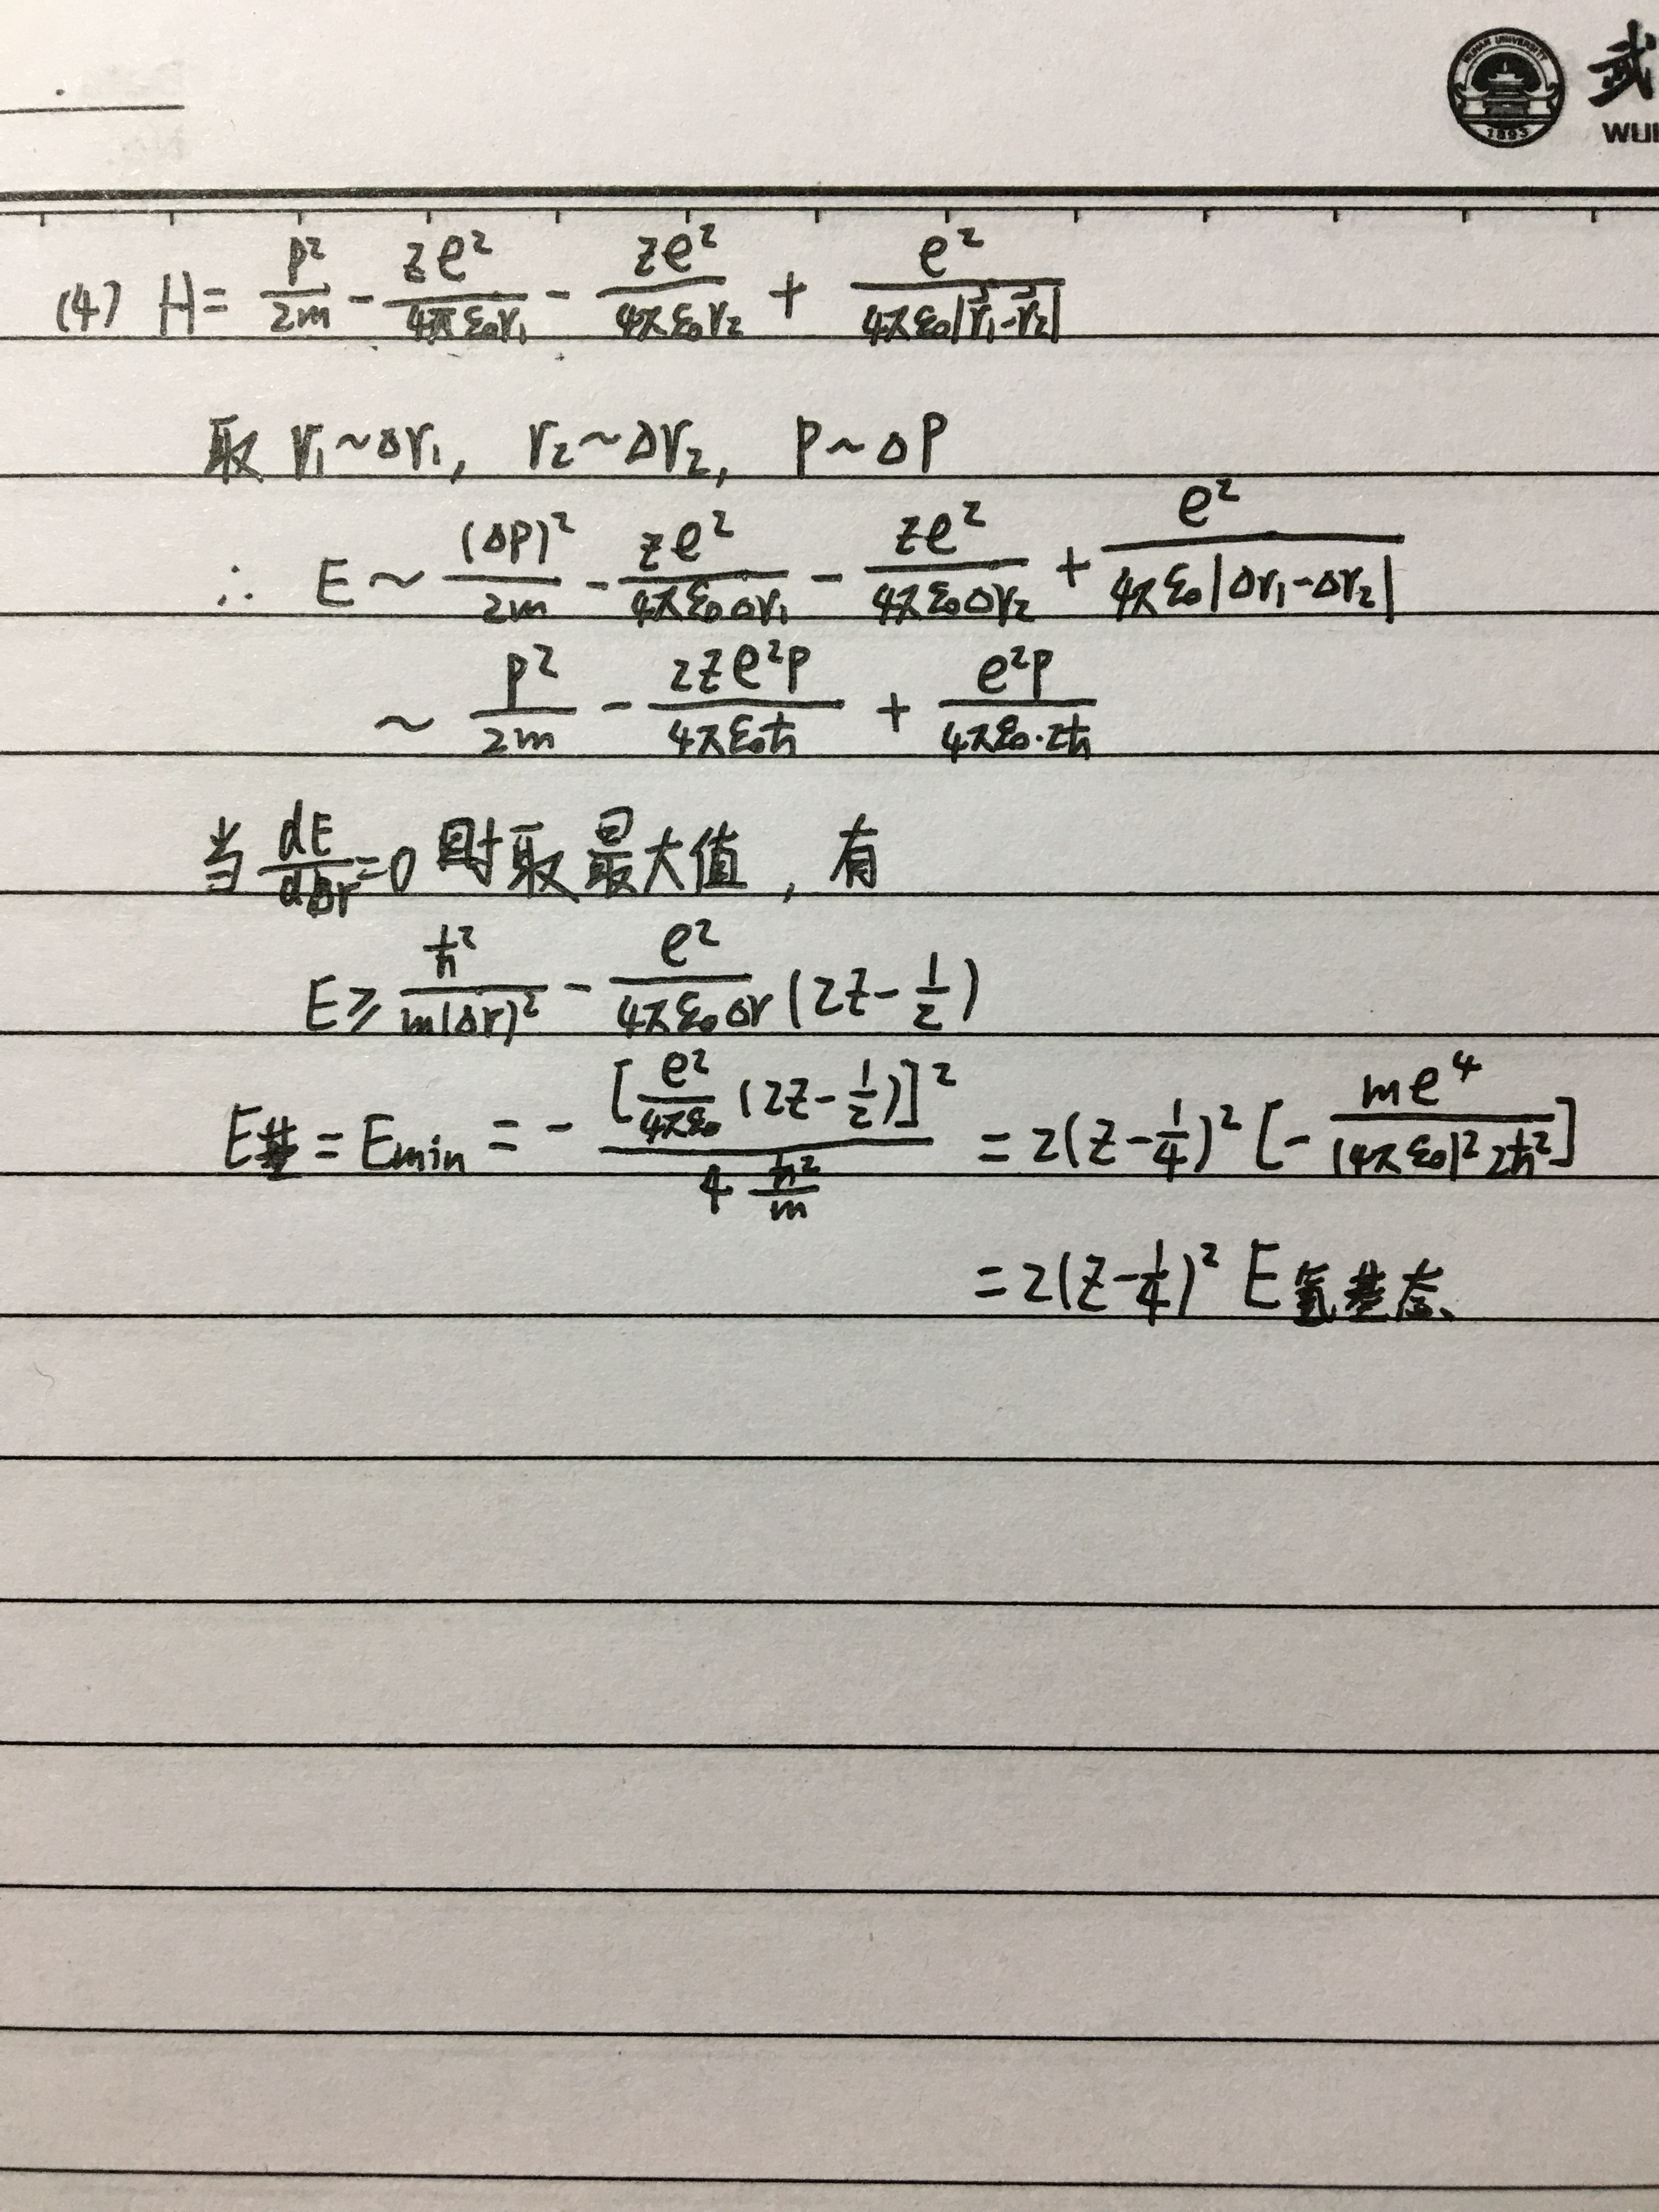 WUHAN UNIVERSITY
1893
武
WU
(4) H = p²/2m - ze²/4πε₀r₁ - ze²/4πε₀r₂ + e²/4πε₀|r⃗₁-r⃗₂|
取 r₁~Δr₁, r₂~Δr₂, P~ΔP
∴ E ~ (ΔP)²/2m - ze²/4πε₀Δr₁ - ze²/4πε₀Δr₂ + e²/4πε₀|Δr₁-Δr₂|
~ p²/2m - 2ze²p/4πε₀ħ + e²p/4πε₀·2ħ
当 dE/dΔr=0 时取最大值, 有
E ≥ ħ²/m(Δr)² - e²/4πε₀Δr (2z - 1/2)
E基 = Emin = - [e²/4πε₀ (2z - 1/2)]² / 4 ħ²/m = 2(z - 1/4)² [- me⁴/(4πε₀)²2ħ²]
= 2(z - 1/4)² E氢基态、